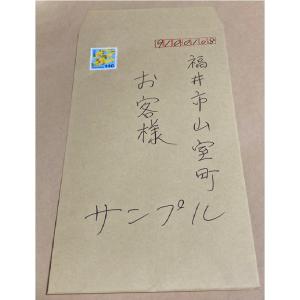 9100108
福井市山室町
お客様
サンプル
110